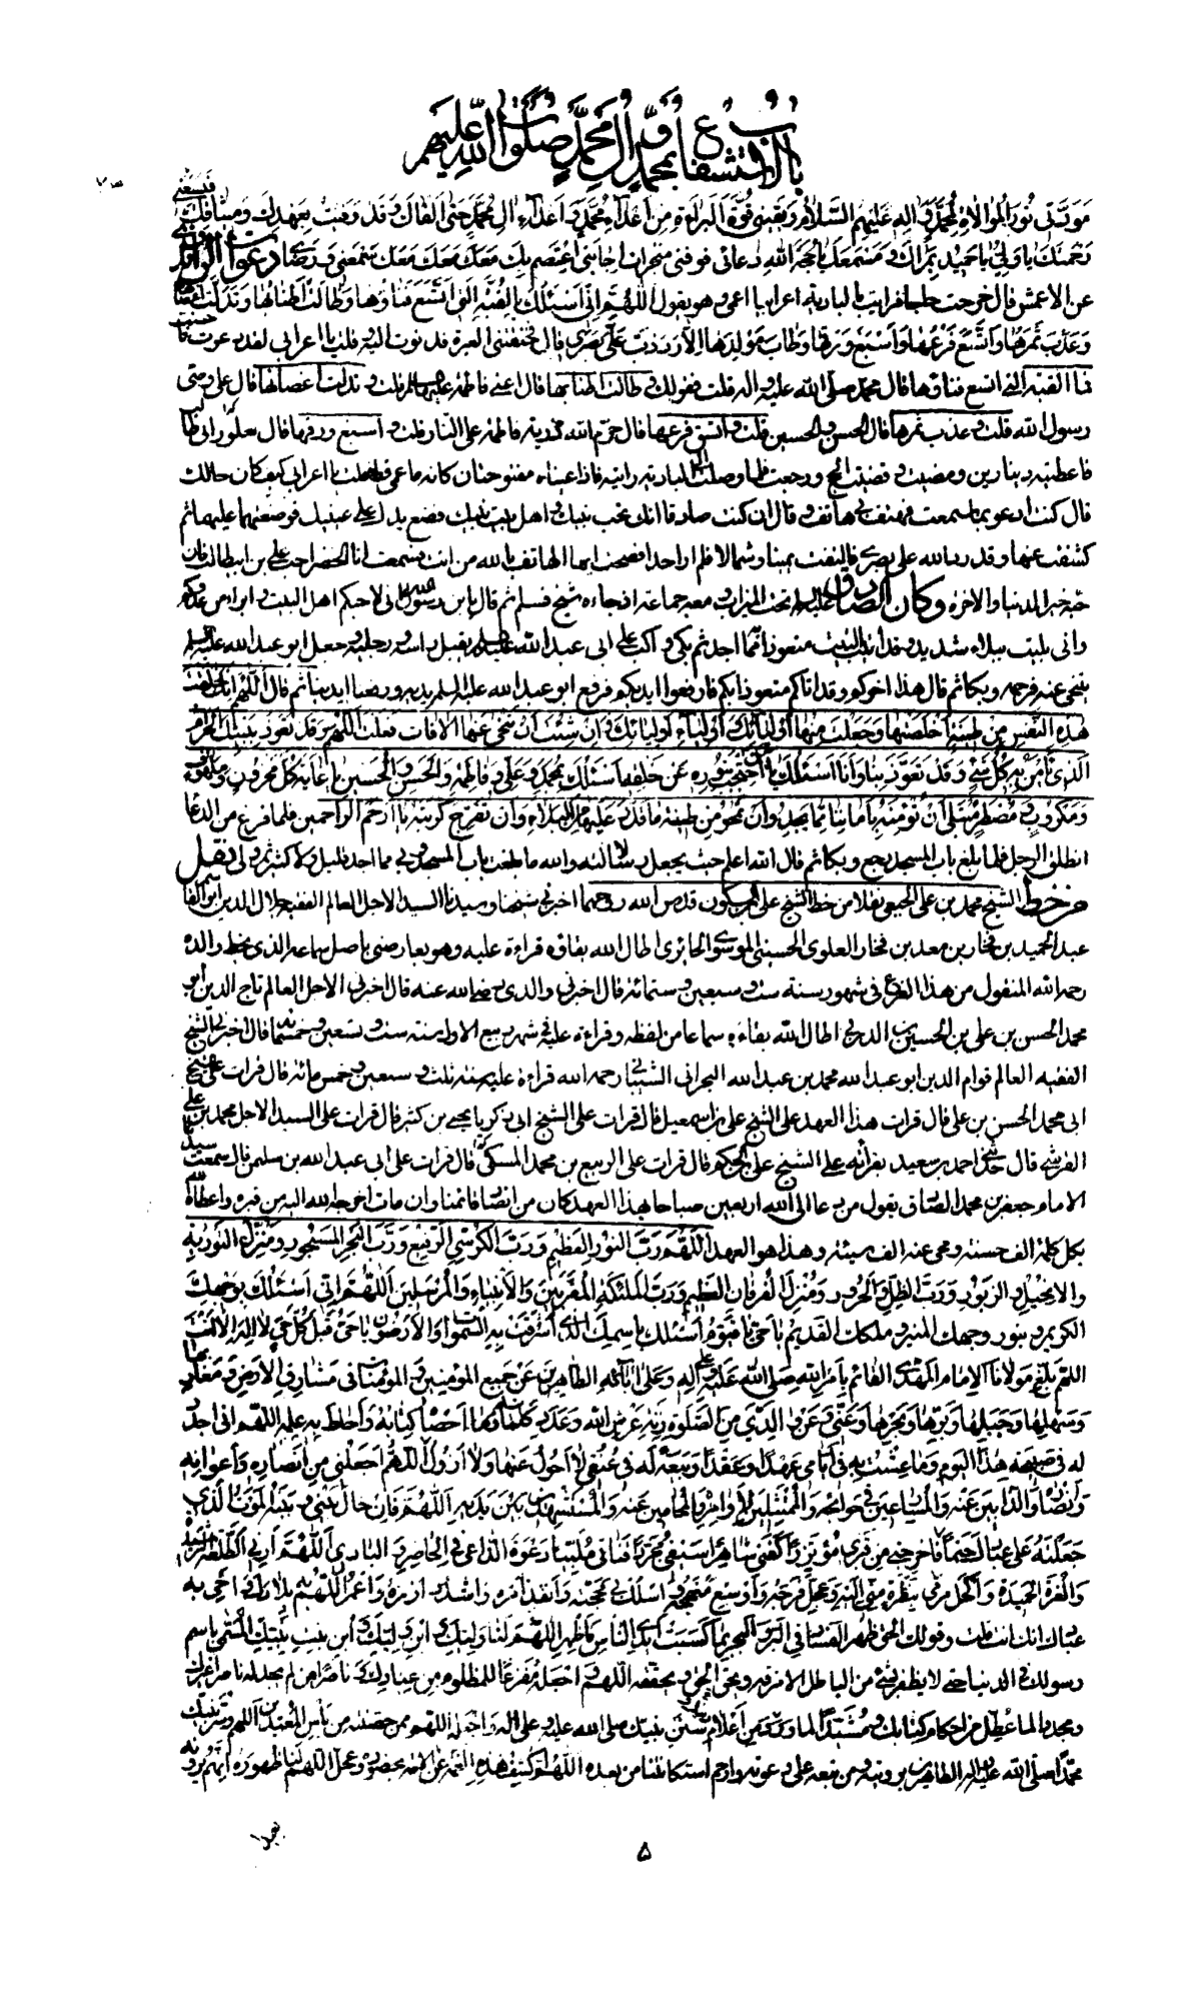 باب الاستشفاع بمحمد وآل محمد صلوات الله عليهم
مودتى نور الموالاة لمحمد وآله عليهم السلام ويقينى قوة البراءة من اعداء محمد واعداء آل محمد حتى القاك وقد وفيت بعهدك وميثاقك فتسعنى
رحمتك يا ولى يا حميد بمرآك ومسمعك يا حجة الله دعائى فوفنى منجزات اجابتى اعتصم بك معك معك معك سمعى ورضاى
عن الاعمش قال خرجت حاجا فرايت بالبادية اعرابيا اعمى وهو يقول اللهم انى اسئلك بالقبة التى اتسع فناؤها وطالت اطنابها وتدلت اغصانها
وعذب ثمرها واتسق فرعها واسبغ ورقها وطاب مولدها الا رددت على بصرى قال فخنقتنى العبرة فدنوت اليه فقلت يا اعرابى لقد دعوت فاحسنت
فما القبة التى اتسع فناؤها قال محمد صلى الله عليه وآله قلت فقولك طالت اطنابها قال اعنى فاطمة عليها السلم قلت وتدلت اغصانها قال على وصى
رسول الله قلت وعذب ثمرها قال الحسن والحسين قلت واتسق فرعها قال حرم الله ذرية فاطمة على النار قلت واسبغ ورقها قال بعلى بن ابى طالب
فاعطيته دينارين ومضيت وقضيت الحج ورجعت فلما وصلت الى البادية رايته فاذا عيناه مفتوحتان كانه ما عمى قط قلت يا اعرابى كيف كان حالك
قال كنت ادعو بما سمعت فهتف بى هاتف وقال ان كنت صادقا انك تحب نبيك واهل بيت نبيك فضع يدك على عينيك فوضعتهما عليهما ثم
كشفت عنها وقد رد الله على بصرى فالتفت يمينا وشمالا فلم ار احدا فصحت ايها الهاتف بالله من انت فسمعت انا الخضر احب على بن ابيطالب فان
حبه خير الدنيا والاخرة وكان الصادق عليه السلم تحت الميزاب ومعه جماعة اذ جاءه شيخ فسلم ثم قال يا بن رسول الله انى لاحبكم اهل البيت وابرأ من عدوكم
وانى بليت ببلاء شديد وقد اتيت البيت متعوذا به مما اجد ثم بكى واكب على ابى عبد الله عليه السلم يقبل راسه ورجليه وجعل ابو عبد الله عليه السلم
يتنحى عنه فرحمه وبكا ثم قال هذا اخوكم وقد اتاكم متعوذا بكم فارفعوا ايديكم فرفع ابو عبد الله عليه السلم يديه ورفعنا ايدينا ثم قال اللهم انك خلقت
هذه النفس من طينة اخلصتها وجعلت منها اوليائك واولياء اوليائك وان شئت ان تنحى عنها الافات فعلت اللهم وقد تعوذ ببيتك الحرام
الذى يأمن به كل شئ وقد تعوذ بنا وانا اسئلك يا من احتجب بنوره عن خلقه اسئلك بمحمد وعلى وفاطمة والحسن والحسين يا غاية كل محزون وملهوف
ومكروب ومضطر مبتلى ان تؤمنه باماننا مما يجد وان تمحو من طينته ما قدر عليها من البلاء وان تفرج كربته يا ارحم الراحمين فلما فرغ من الدعا
انطلق الرجل فلما بلغ باب المسجد رجع وبكا ثم قال الله اعلم حيث يجعل رسالته والله ما بلغت باب المسجد وبى مما اجد قليل ولا كثير ثم ولى نقل
من خط الشيخ محمد بن على الجبعى نقلا من خط الشيخ على بن السكون قدس الله روحهما اخبرنى شيخنا وسيدنا السيد الاجل العالم الفقيه جلال الدين ابو القاسم
عبد الحميد بن فخار بن معد بن فخار العلوى الحسينى الموسوى الحائرى اطال الله بقاؤه قراءة عليه وهو يعارضنى باصل سماعه الذى بخط والده
رحمه الله المنقول من هذا الفرع فى شهور سنة ست وسبعين وستمائة قال اخبرنى والدى رضى الله عنه قال اخبرنى الاجل العالم تاج الدين ابو
محمد الحسن بن على بن الحسين بن الدربى اطال الله بقاءه سماعا من لفظه وقراءة عليه فى شهر ربيع الاول سنة ست وتسعين وخمسمائة قال اخبرنى الشيخ
الفقيه العالم قوام الدين ابو عبد الله محمد بن عبد الله البحرانى الشيبانى رحمه الله قراءة عليه سنة ثلث وسبعين وخمس مائة قال قرات على الشيخ
ابى محمد الحسن بن على قال قرات هذا العهد على الشيخ على بن اسمعيل قال قرات على الشيخ ابى زكريا يحيى بن كثير قال قرات على السيد الاجل محمد بن على
القرشى قال حدثنى احمد بن سعيد بقرائته على الشيخ على بن الحكم قال قرات على الربيع بن محمد المسلى قال قرات على ابى عبد الله بن سليمن قال سمعت سيدنا
الامام جعفر بن محمد الصادق يقول من دعا الى الله اربعين صباحا بهذا العهد كان من انصار قائمنا وان مات اخرجه الله اليه من قبره واعطاه الله
بكل كلمة الف حسنة ومحى عنه الف سيئة وهذا هو العهد اللهم رب النور العظيم ورب الكرسى الرفيع ورب البحر المسجور ومنزل التورية
والانجيل والزبور ورب الظل والحرور ومنزل الفرقان العظيم ورب الملئكة المقربين والانبياء والمرسلين اللهم انى اسئلك بوجهك
الكريم وبنور وجهك المنير وملكك القديم يا حى يا قيوم اسئلك باسمك الذى اشرقت به السموات والارضون يا حى قبل كل حى لا اله الا انت
اللهم بلغ مولانا الامام المهدى القائم بامر الله صلى الله عليه وعلى آله وعلى آبائه الطاهرين عن جميع المؤمنين والمؤمنات فى مشارق الارض ومغاربها
وسهلها وجبلها وبرها وبحرها وعنى وعن والدى من الصلوة زنة عرش الله وعدد كلماته وما احصاه كتابه واحاط به علمه اللهم انى اجدد
له فى صبيحة هذا اليوم وما عشت به فى ايامى عهدا وعقدا وبيعة له فى عنقى لا احول عنها ولا ازول اللهم اجعلنى من انصاره واعوانه
وانصاره الذابين عنه والمسارعين فى حوائجه والممتثلين لاوامره والمحامين عنه والمستشهدين بين يديه اللهم فان حال بينى وبينه الموت الذى
جعلته على عبادك حتما فاخرجنى من قبرى مؤتزرا كفنى شاهرا سيفى مجردا قناتى ملبيا دعوة الداعى فى الحاضر والبادى اللهم ارنى الطلعة الرشيدة
والغرة الحميدة واكحل مرهى بنظرة منى اليه وعجل فرجه واوسع منهجه واسلك بى محجته وانفذ امره واشدد ازره واعمر اللهم به بلادك واحى به
عبادك انك قلت وقولك الحق ظهر الفساد فى البر والبحر بما كسبت ايدى الناس فاظهر اللهم لنا وليك وابن وليك وابن بنت نبيك المسمى باسم
رسولك فى الدنيا حتى لا يظفر بشئ من الباطل الا مزقه ويحق الحق ويحققه اللهم واجعله مفزعا للمظلوم من عبادك وناصرا لمن لم يجد له ناصرا غيرك
ومجددا لما عطل من احكام كتابك ومشيدا لما ورد من اعلام دينك وسنن نبيك صلى الله عليه وعلى آله واجعله اللهم ممن حصنته من بأس المعتدين اللهم وسر نبيك
محمدا صلى الله عليه وآله الطاهرين برؤيته ومن تبعه على دعوته وارحم استكانتنا من بعده اللهم اكشف هذه الغمة عن الامة بحضوره وعجل اللهم لنا ظهوره انهم يرونه
بعيدا
۵